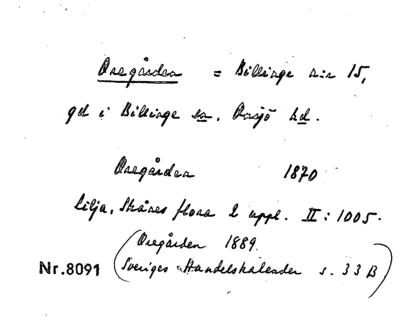 Oregården = Billinge n:r 15,
gd i Billinge sn. Onsjö hd.
Oregården 1870
Lilja, Skånes flora 2 uppl. II: 1005.
(Oregården 1889.
Sveriges Handelskalender s. 33 B)
Nr.8091